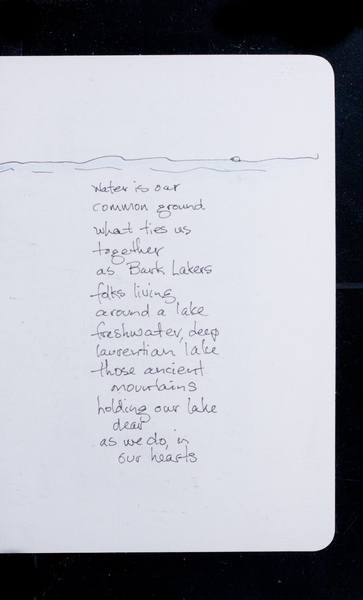 water is our
common ground
what ties us
together
as Bark Lakers
folks living
around a lake
freshwater, deep
laurentian lake
those ancient
mountains
holding our lake
dear
as we do, in
our hearts